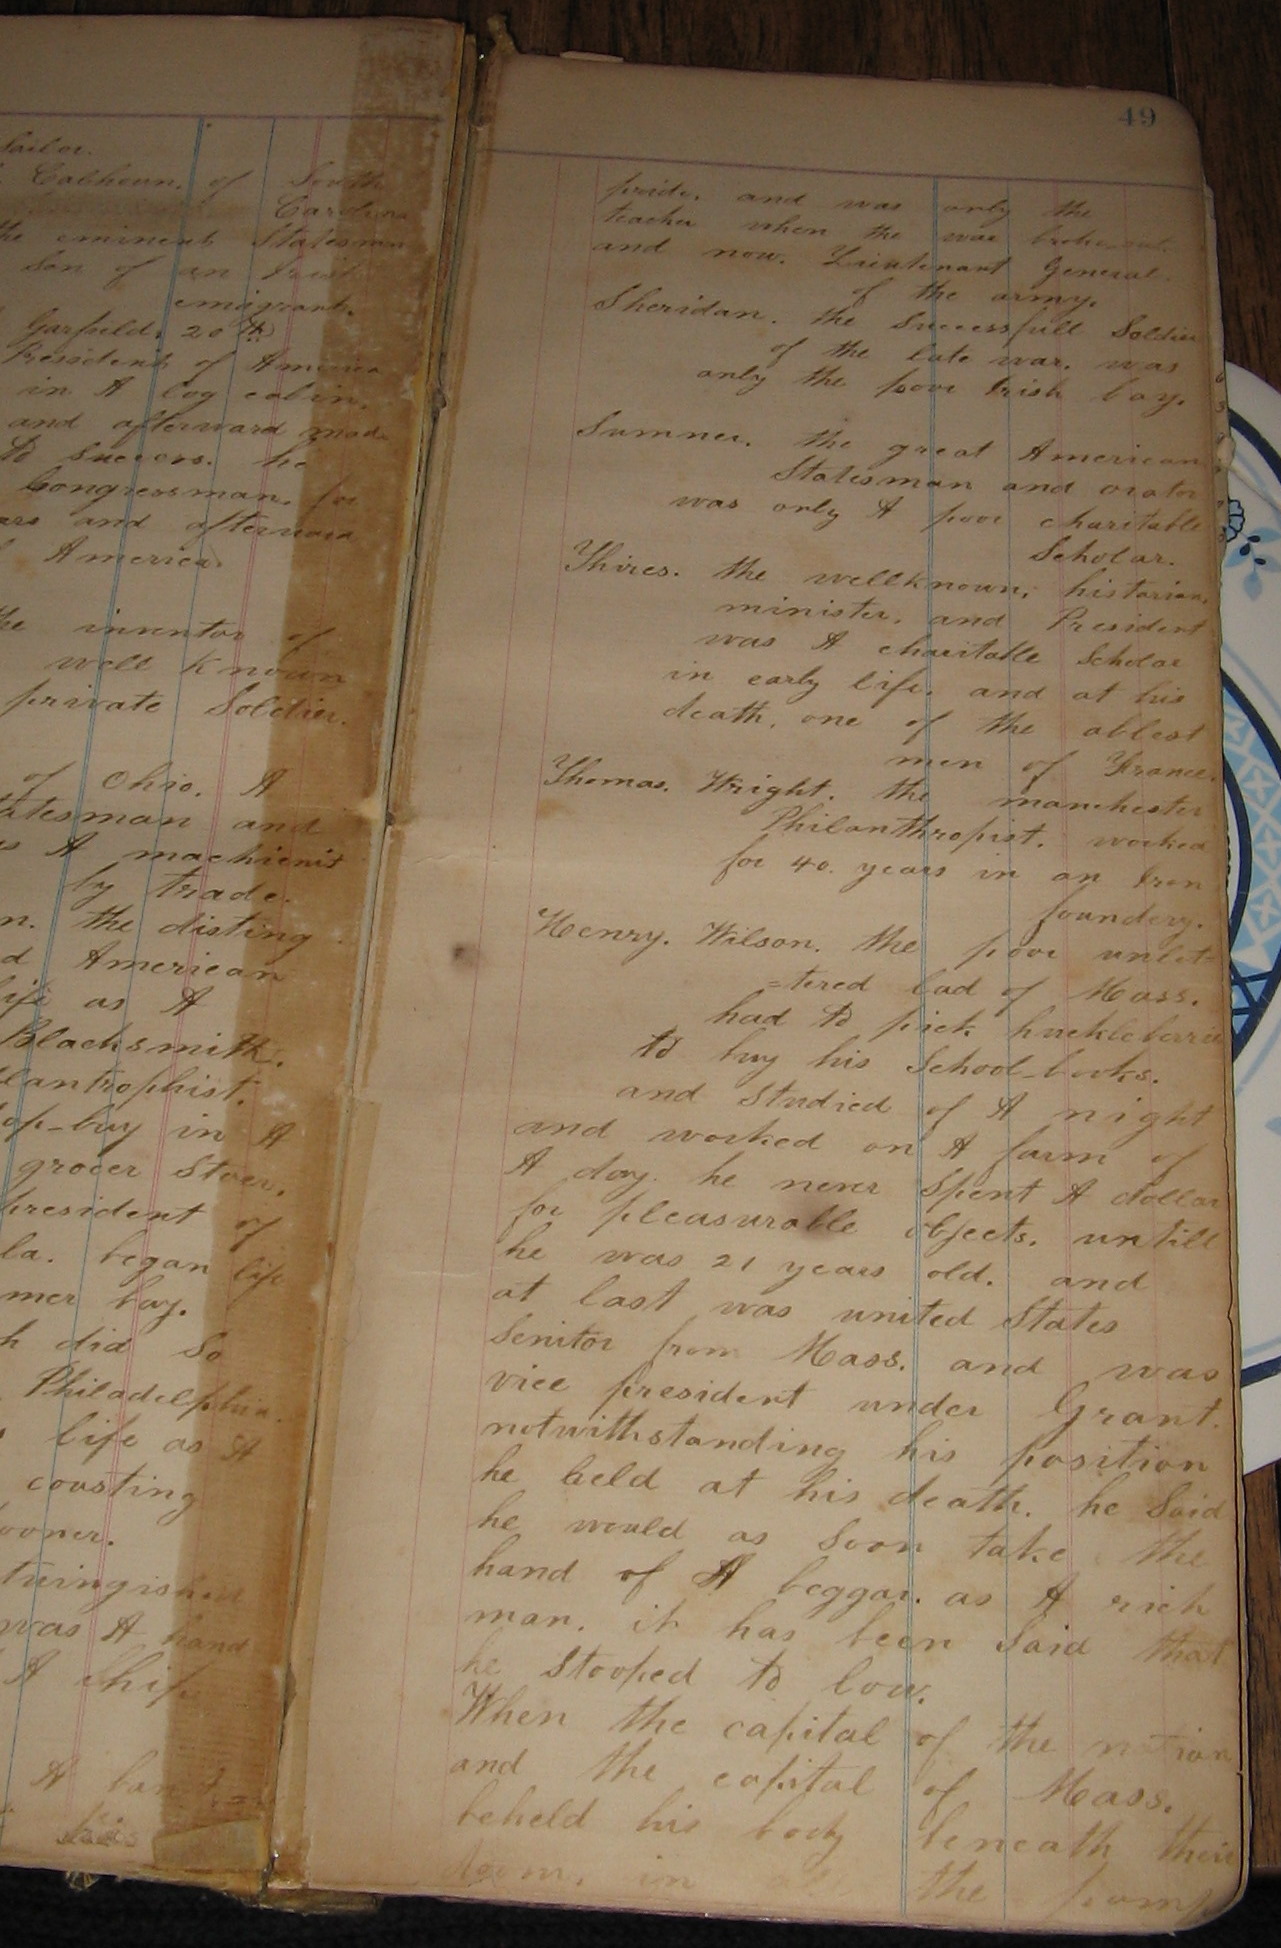 Sailor.
Calhoun. of South
Carolina
the eminent Statesman
Son of an Irish
emigrant.
Garfield. 20th
President of America
in A log cabin.
and afterward made
to success. he
Congressman. for
and afterward
America

the inventor of
well known
private Soldier.

of Ohio. A
and
A machienist
by trade.
the disting
American
life as A
Blacksmith.

in A
grocer Stoer.
president of
began life
boy.
did So
Philadelphia.
life as A
cousting

was A hand
A Ship

A
49
pride. and was only the
teacher when the war broke out.
and now. Lieutenant General.
of the army.
Sheridan. the Successfull Soldier
of the late war. was
only the poor Irish boy.
Sumner. the great American
Statesman and orator
was only A poor charitable
Scholar.
Thires. the wellknown, historian,
minister, and President
was A charitable Scholar
in early life. and at his
death, one of the ablest
men of France.
Thomas. Wright. the manchester
Philanthropist. worked
for 40. years in an Iron
foundery.
Henry. Wilson. the poor unlet=
=tered lad of Mass.
had to pick huckleberries
to buy his School-books.
and Studied of A night
and worked on A farm of
A day. he never Spent A dollar
for pleasurable objects. untill
he was 21 years old. and
at last was united States
Senitor from Mass. and was
vice president under Grant.
notwithstanding his position
he held at his death. he Said
he would as Soon take the
hand of A beggar. as A rich
man. it has been Said that
he Stooped to low.
When the capital of the nation
and the capital of Mass.
beheld his body beneath their
in the pomp